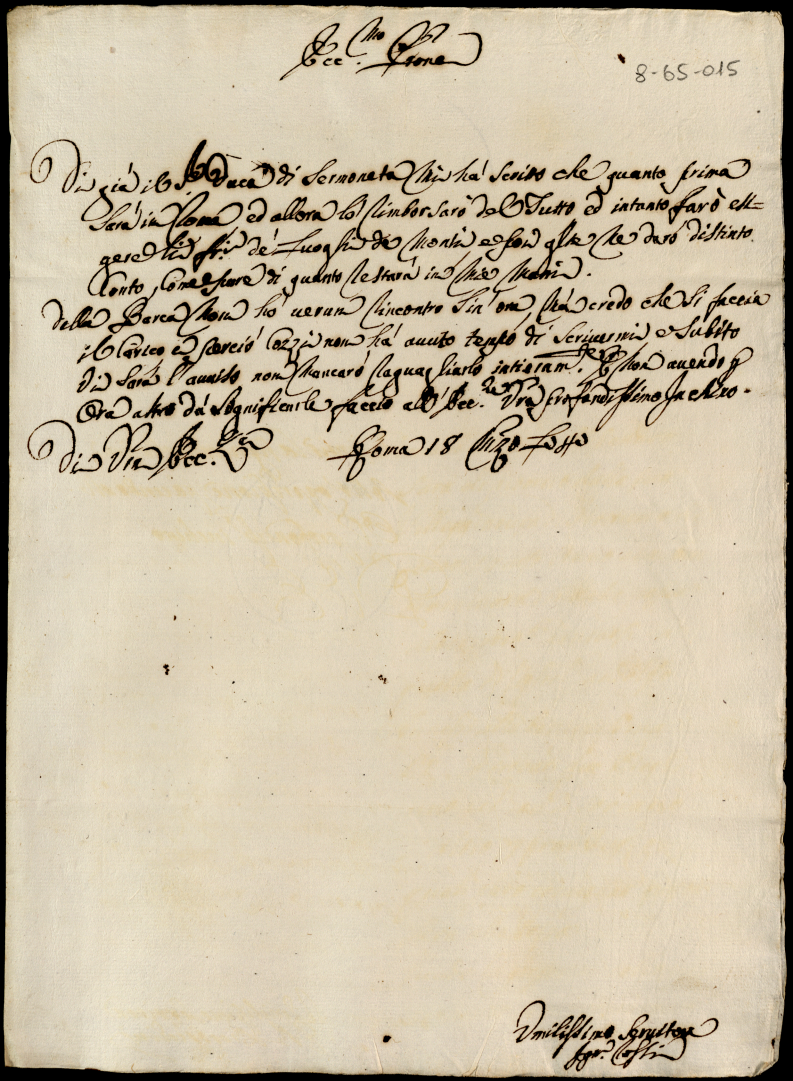 Ecc.mo Prone
8-65-015
Di già il Sr Duca di Sermoneta mi ha scritto che quanto prima
sarà in Roma ed allora lo rimborsarò del tutto ed intanto farò esi=
gere li frti de Luoghi de Monti e con qste ne darò distinto
Conto, come pure di quanto restarà in mie mani.
della Barca non hò verun rincontro sin'ora, mà credo che si faccia
il Carico e perciò non hà avuto tempo di scrivermi e subito
di sarà l'avviso non mancarò raguagliarlo Non avendo p
Ora altro dà significarle faccio all'Ecc.za Vra profondissimo inchino.
Di Vra Ecc.za Roma 18 Mzo
Umilissimo Servitore